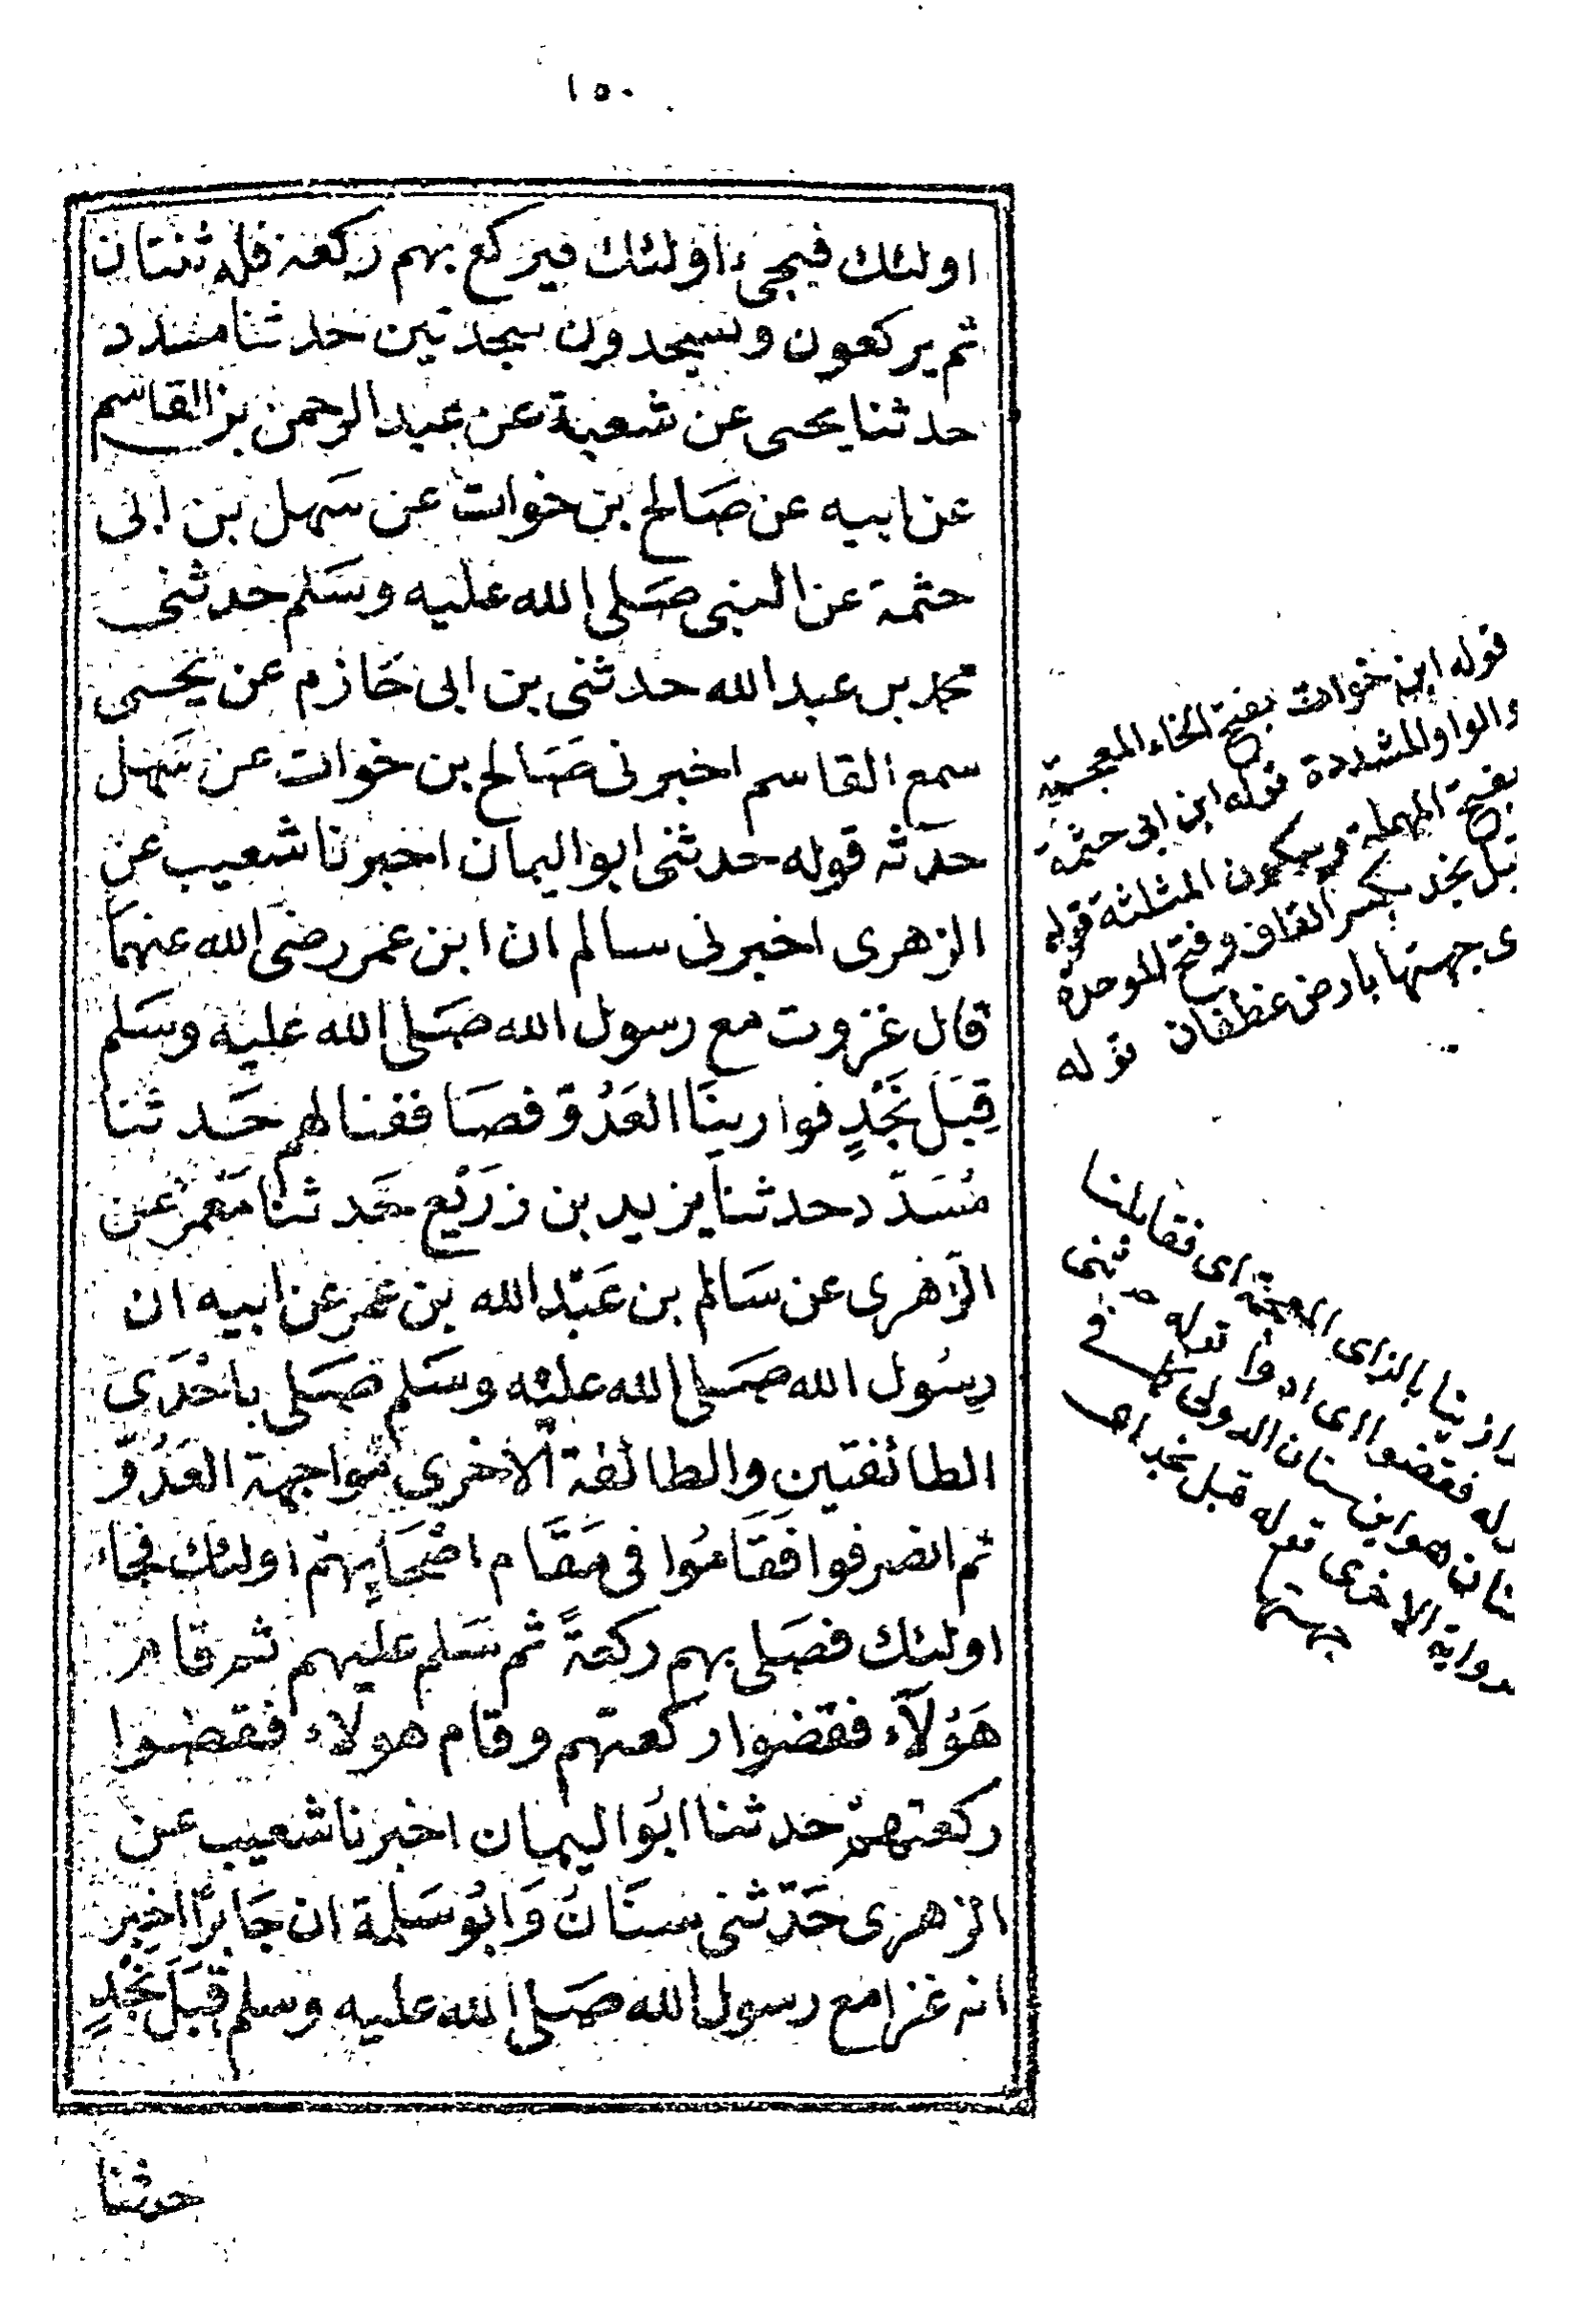 ١٥٠
اولئك فيجىء اولئك فيركع بهم ركعة فله ثنتان
ثم يركعون ويسجدون سجدتين حدثنا مسدد
حدثنا يحيى عن شعبة عن عبد الرحمن بن القاسم
عن ابيه عن صَالح بن خوات عن سَهل بن ابى
حثمة عن النبى صَلى الله عليه وسَلم حدثنى
محمد بن عبد الله حدثنى بن ابى حَازم عن يحيى
سمع القاسم اخبرنى صَالح بن خوات عن سَهل
حدّثه قوله حدثنى ابو اليمان اخبرنا شعيب عن
الزهرى اخبرنى سالم ان ابن عمر رضى الله عنهمَا
قال غزوت مع رسول الله صَلى الله عليه وسَلم
قِبَل نَجْدٍ فوازينَا العَدُوّ فصَاففنا لهم حَدثنا
مُسَدّد حدثنا يزيد بن زرَيْع حَدثنا مَعْمر عن
الزّهرى عن سَالم بن عَبْد الله بن عمر عن ابيه ان
رسُول الله صَلى الله عليْه وسَلم صَلى باحْدَى
الطائفتين والطائفة الاخرى مُواجهة العَدُوّ
ثم انصرفوا فقَامُوا فى مَقَام اصْحَابِهمْ اولئك فجاء
اولئك فصَلى بهم ركعةً ثم سَلم عليهم ثم قام
هَؤلَآء فقضوا ركعتهم وقام هولَاء فقضوا
ركعتهمْ حدثنا ابُو اليمان اخبرنا شعيب عن
الزهرى حَدّثنى سنَان وَابُو سَلمة ان جَابرًا اخبر
انه غزا مع رسول الله صَلى الله عليه وسلم قِبَلَ نَجْدٍ
حدثنا
قوله ابن خوات بفتح الخاء المعجمة
والواو المشددة قوله ابن ابى حثمة
بفتح المهملة وسكون المثلثة قوله
قبل نجد بكسر القاف وفتح الموحدة
ى جهتها بارض غطفان قوله
وازينا بالزاى المعجمة اى فقابلنا
فقضوا اى ادوا قوله حدثنى
هو ابن سنان الدولى كما فى
الرواية الاخرى قوله قبل نجد اى
جهتها